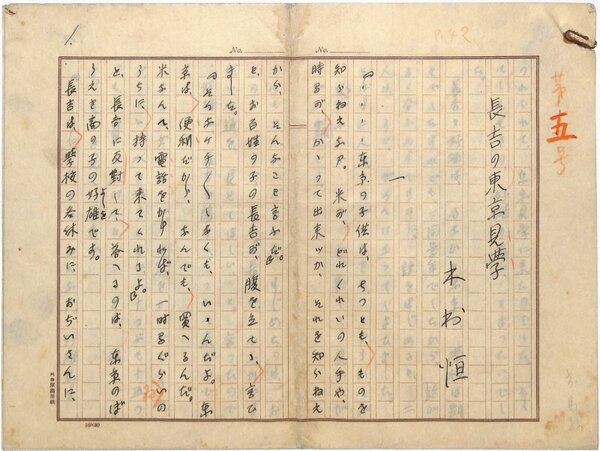 第五号
長吉の東京見学
木村恒
一
『・・・・東京の子供は、ちつとも、ものを
知らねえよ。米が、どれくれいの人手や、
時間が、かゝつて出来つか、それを知らねえ
から、そんなことを言ふだ。』
と、お百姓の子の長吉が、腹を立てゝ、言ひ
ました。
『そんなにケチケチしなくも、いゝんだよ。東
京は、便利だから、なんでも、買へるんだ。
米なんて、電話をかければ、一時間ぐらいの
うちに、持つて来てくれるよ。』
と、長吉に反対して、答へるのは、東京のば
うえきの商の子の好雄です。
長吉は、学校の冬休みに、おぢいさんに、
No.
No.
1.